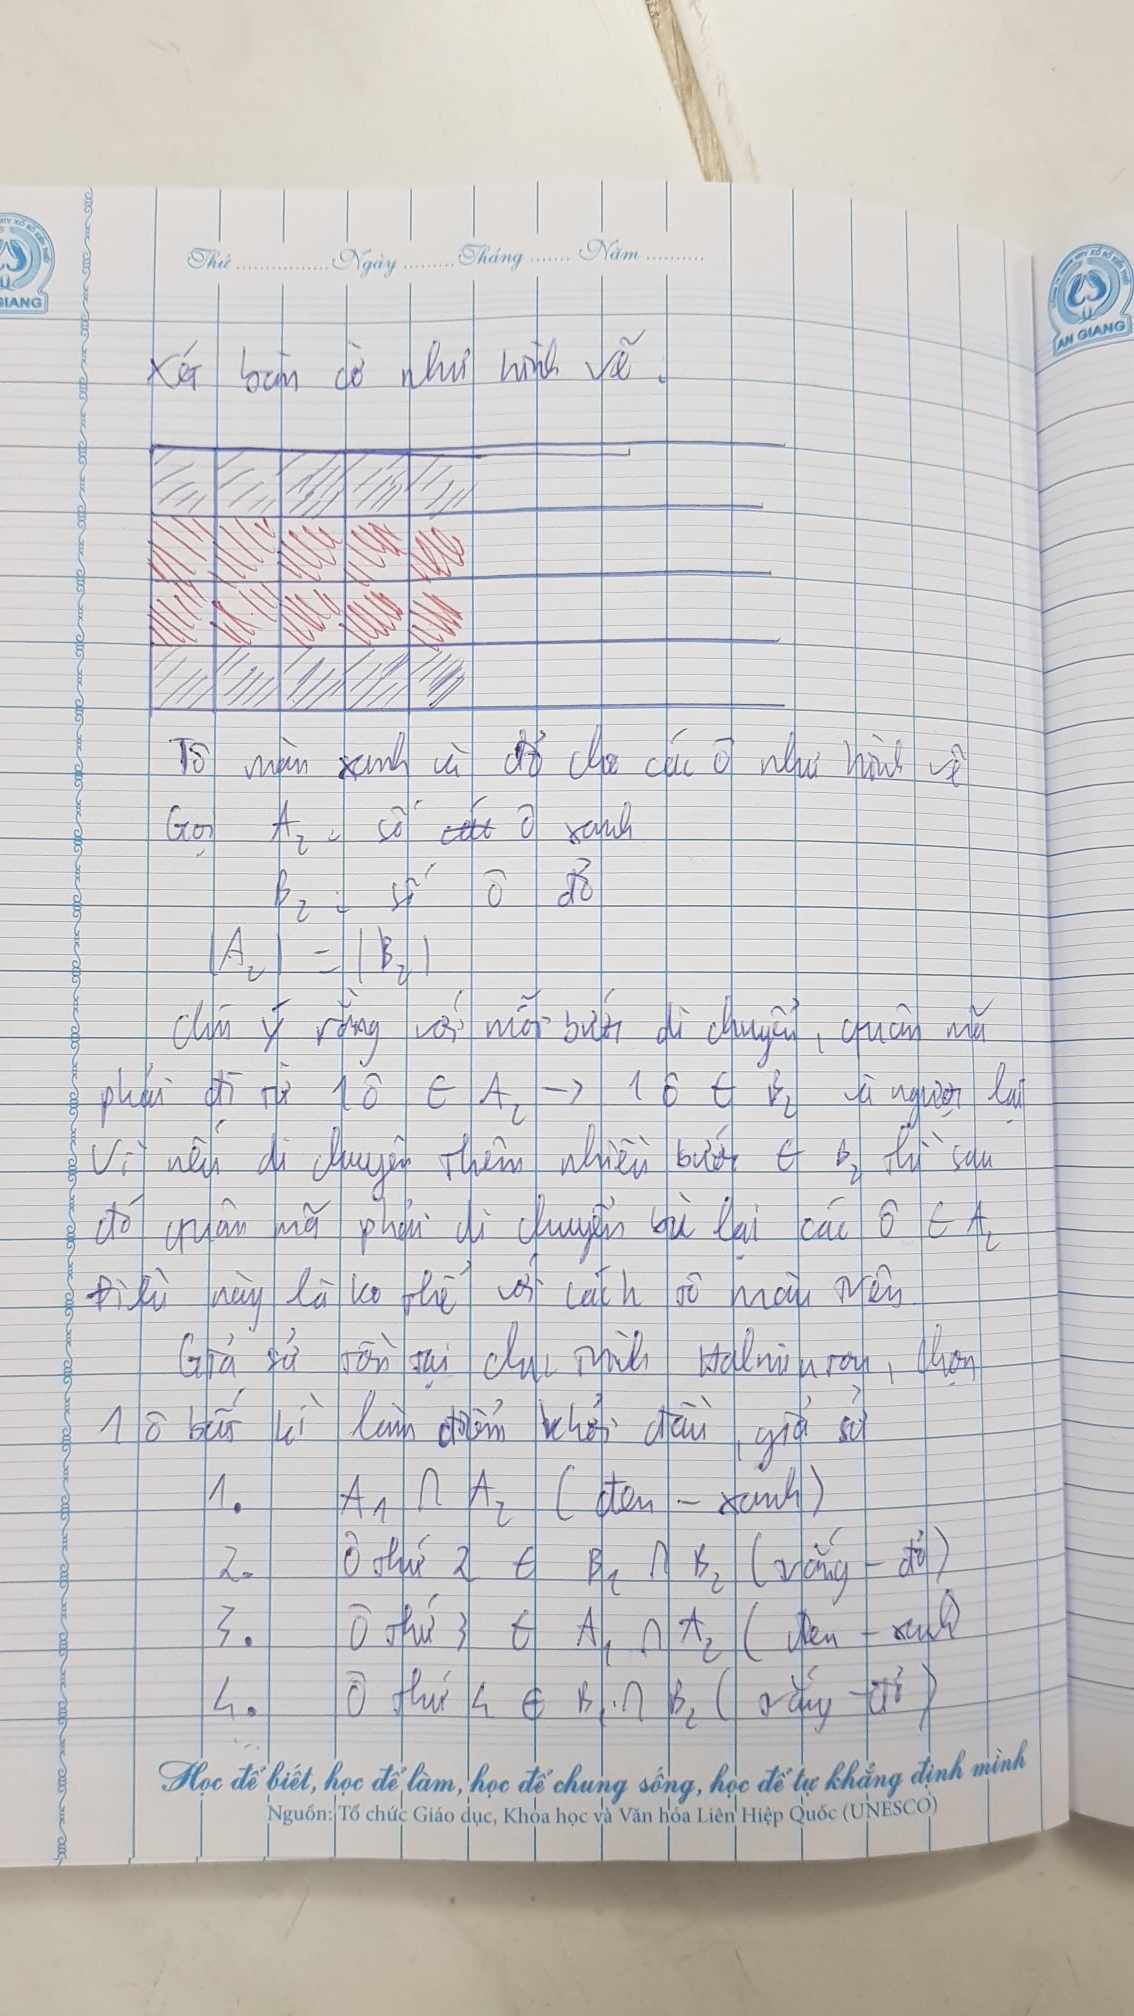 Thứ ................ Ngày ......... Tháng ....... Năm ..........
GIANG
AN GIANG
Xét bàn cờ như hình vẽ.
Tô màu xanh và đỏ cho các ô như hình vẽ
Gọi A₂ : số ô xanh
B₂ : số ô đỏ
|A₂| = |B₂|
Chú ý rằng với mỗi bước di chuyển, quân mã
phải đi từ 1 ô ∈ A₂ → 1 ô ∈ B₂ và ngược lại
Vì nếu di chuyển thêm nhiều bước ∈ B₂ thì sau
đó quân mã phải di chuyển bù lại các ô ∈ A₂
Điều này là ko thể với cách tô màu trên
Giả sử tồn tại chu trình Halminton, chọn
1 ô bất kì làm điểm khởi đầu, giả sử
1. A₁ ∩ A₂ (đen - xanh)
2. Ô thứ 2 ∈ B₁ ∩ B₂ (trắng - đỏ)
3. Ô thứ 3 ∈ A₁ ∩ A₂ (đen - xanh)
4. Ô thứ 4 ∈ B₁ ∩ B₂ (trắng - đỏ)
Học để biết, học để làm, học để chung sống, học để tự khẳng định mình
Nguồn: Tổ chức Giáo dục, Khoa học và Văn hóa Liên Hiệp Quốc (UNESCO)